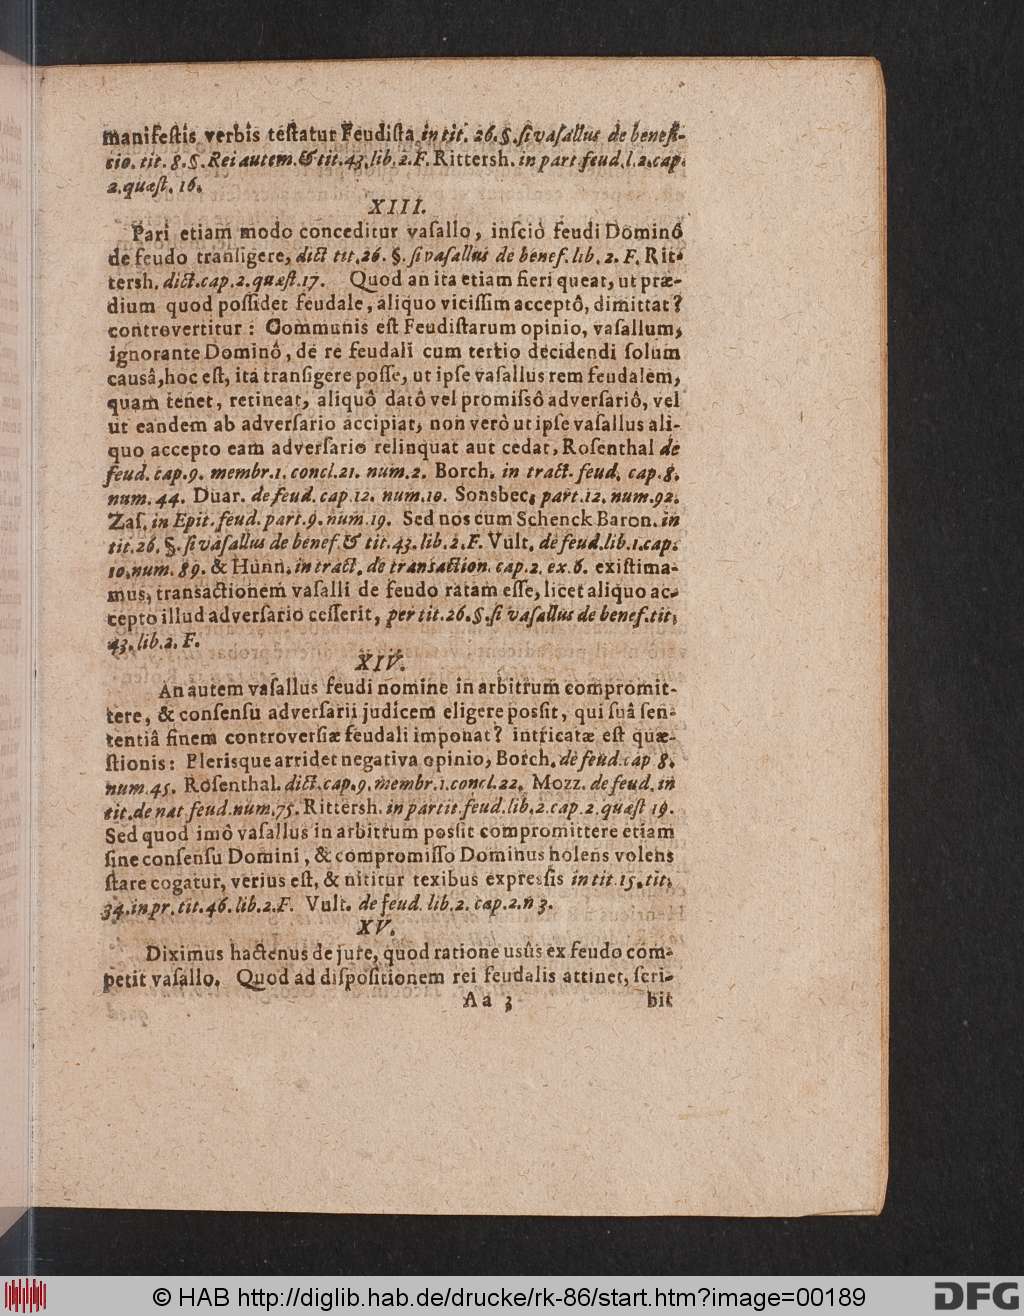 manifeſtis verbis teſtatur Feudiſta in tit. 26. §. ſi vaſallus de benefi-
cio. tit. 8. §. Rei autem. & tit. 43. lib. 2. F. Rittersh. in part. feud. l. 2. cap.
2. quæſt. 16.
XIII.
Pari etiam modo conceditur vaſallo, inſciô feudi Dominô
de feudo tranſigere, dict tit. 26. §. ſi vaſallus de benef. lib. 2. F. Rit-
tersh. dict. cap. 2. quæſt. 17. Quod an ita etiam fieri queat, ut præ-
dium quod poſſidet feudale, aliquo viciſſim acceptô, dimittat?
controvertitur: Communis eſt Feudiſtarum opinio, vaſallum,
ignorante Dominô, de re feudali cum tertio decidendi ſolum
causâ, hoc eſt, ita tranſigere poſſe, ut ipſe vaſallus rem feudalem,
quam tenet, retineat, aliquô datô vel promiſsô adverſariô, vel
ut eandem ab adverſario accipiat, non verò ut ipſe vaſallus ali-
quo accepto eam adverſario relinquat aut cedat, Roſenthal de
feud. cap. 9. membr. 1. concl. 21. num. 2. Borch. in tract. feud. cap. 8.
num. 44. Duar. de feud. cap. 12. num. 10. Sonsbec, part. 12. num. 92.
Zaſ. in Epit. feud. part. 9. num. 19. Sed nos cum Schenck Baron. in
tit. 26. §. ſi vaſallus de benef. & tit. 43. lib. 2. F. Vult. de feud. lib. 1. cap.
10. num. 89. & Hunn. in tract. de transaction. cap. 2. ex. 6. exiſtima-
mus, transactionem vaſalli de feudo ratam eſſe, licet aliquo ac-
cepto illud adverſario ceſſerit, per tit. 26. §. ſi vaſallus de benef. tit.
43. lib. 2. F.
XIV.
An autem vaſallus feudi nomine in arbitrum compromit-
tere, & conſenſu adverſarii judicem eligere poſſit, qui ſuâ ſen-
tentiâ finem controverſiæ feudali imponat? intricatæ eſt quæ-
ſtionis: Plerisque arridet negativa opinio, Borch. de feud. cap 8.
num. 45. Roſenthal. dict. cap. 9. membr. 1. concl. 22. Mozz. de feud. in
tit. de nat feud. num. 75. Rittersh. in partit. feud. lib. 2. cap. 2. quæſt 19.
Sed quod imò vaſallus in arbitrum poſſit compromittere etiam
ſine conſenſu Domini, & compromiſſo Dominus nolens volens
ſtare cogatur, verius eſt, & nititur texibus expreſsis in tit. 15. tit.
34. in pr. tit. 46. lib. 2. F. Vult. de feud. lib. 2. cap. 2. n 3.
XV.
Diximus hactenus de jure, quod ratione usûs ex feudo com-
petit vaſallo. Quod ad diſpoſitionem rei feudalis attinet, ſeri-
Aa 3 bit
© HAB http://diglib.hab.de/drucke/rk-86/start.htm?image=00189
DFG